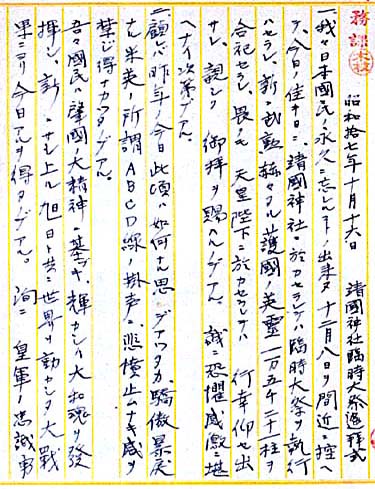 務課
昭和拾七年十月十六日 靖國神社臨時大祭遥拝式
一、我々日本國民ノ永久ニ忘ルルコトノ出来ヌ十二月八日ヲ間近ニ控ヘ
テ、今日ノ佳キ日ニ、靖國神社ニ於カセラレテハ臨時大祭ヲ執行
ハセラレ、新ニ武勲赫々タル護國ノ英靈一万五千二十一柱ヲ
合祀セラレ、畏クモ 天皇陛下ニ於カセラレテハ 行幸仰セ出
サレ、親シク 御拝ヲ賜ハルノデアル。誠ニ恐懼感激ニ堪
ヘナイ次第デアル。
二、顧レバ昨年ノ今日此頃ハ如何ナル思ヒデアツタカ、驕傲暴戻
ナル米英ノ所謂ABCD線ノ掛声ニ悲憤止ムナキ感ヲ
禁ジ得ナカツタノデアル。
吾々國民ハ肇國ノ大精神ニ基ヅキ、輝カシイ大和魂ヲ發
揮シ、新ニサシ上ル旭日ト共ニ世界ヲ動カシタ大戰
果ニヨリ今日アルヲ得タノデアル。洵ニ 皇軍ノ忠誠勇